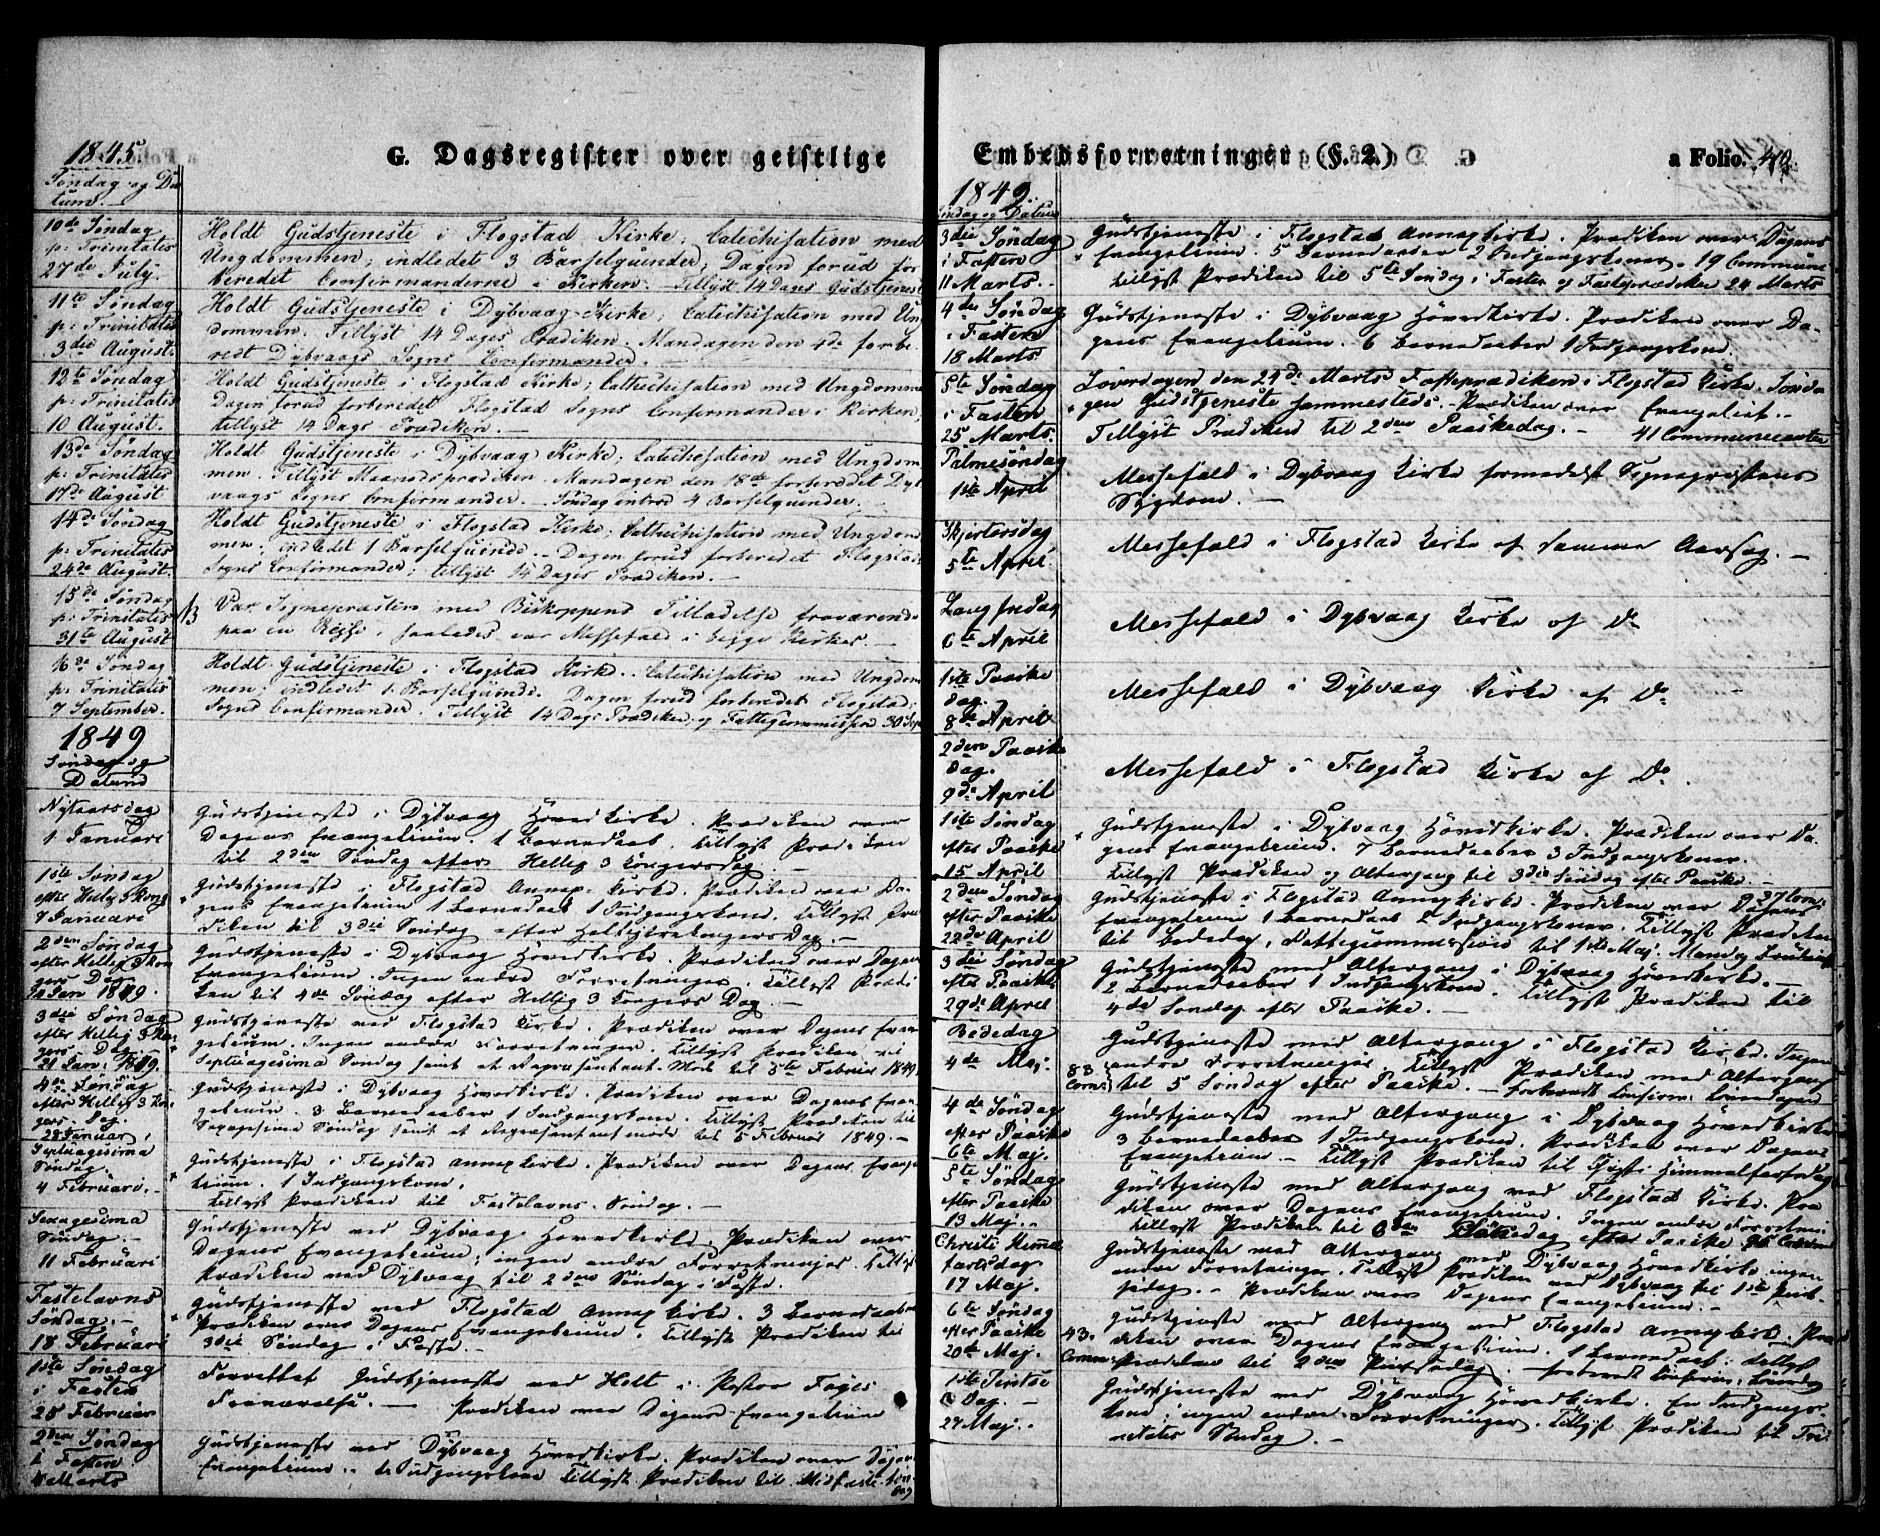 1845.
G. Dagsregister over geistlige
Søndag og Da
tum.
10de Søndag
p: Trinitatis
27de July.
Holdt Gudstjeneste i Flogstad Kirke; Catechisation med
Ungdommen; indledet 3 Barselquinder; Dagen forud for
beredet Confirmanderne i Kirken. Tillyst 14 Dages Gudstjeneste
11te Søndag
p: Trinitatis
3die August.
Holdt Gudstjeneste i Dybvaag Kirke; Catechisation med Un
dommen; Tillyst 14 Dages Prædiken. Mandagen den forbe
redt Dybvaags Sogns Confirmander.
12te Søndag
p: Trinitatis
10 August.
Holdt Gudstjeneste i Flogstad Kirke; Cathechisation med Ungdomme
Dagen forud forberedet Flogstad Sogns Confirmander i Kirken;
tillyst 14 Dags Prædiken.
13de Søndag
p: Trinitatis
17de August
Holdt Gudstjeneste i Dybvaag Kirke; Catechisation med Ungdom
men. Tillyst Maanedsprædiken. Mandagen den 18de forberedet Dyb
vaags Sogns Confirmander. Søndag introd 4 Barselquinder.
14de Søndag
p: Trinitatis
24de August.
Holdt Gudstjeneste i Flogstad Kirke; Cathechisation med Ungdom
men; indledet 1 Barselquinde. Dagen forud forberedet Flogstad
Sogns Confirmander; tillyst 14 Dages Prædiken.
15de Søndag
p: Trinitatis
31te August
Var Sognepræsten med Biskoppens Tilladelse fraværende
paa en Reise, saaledes var Messefald i begge Kirker.
16de Søndag
p: Trinitatis
7 September.
Holdt Gudstjeneste i Flogstad Kirke. Catechisation med Ungdom
men; indledet 1 Barselquinde. Dagen forud forberedet Flogstad
Sogns Confirmander. Tillyst 14 Dags Prædiken og Fattigcommission 30 Sep
1849
Søndag og
Datum
Nytaarsdag
1 Januari
Gudstjeneste i Dybvaag Hovedkirke. Prædiken over
Dagens Evangelium. 1 Barnedaab. Tillyst Prædiken
til 2den Søndag efter Hellig 3 Kongersdag.
1ste Søndag
efter Hellig 3 Kong
7 Januari
Gudstjeneste i Flogstad Annex Kirke. Prædiken over Da
gens Evangelium 1 Barnedaab 1 Indgangskone. Tillyst Præ
diken til 3die Søndag efter Helligtrekongers Dag.
2den Søndag
efter Hellig 3 Kon
gers Dag
14 Jan 1849.
Gudstjeneste i Dybvaag Hovedkirke. Prædiken over Dagens
Evangelium. Ingen andre Forretninger. Tillyst Prædi
ken til 4de Søndag efter Hellig 3 Kongers Dag.
3die Søndag
efter Hellig 3 Kon
gers Dag
21 Jan: 1849.
Gudstjeneste ved Flogstad Kirke. Prædiken over Dagens Evan
gelium. Ingen andre Forretninger. Tillyst Prædiken til
Septuagesima Søndag samt et Repræsentant. Møde til 5te Februar 1849.
4de Søndag
efter Hellig 3 Kon
gers Dag.
28 Januar
Gudstjeneste i Dybvaag Hovedkirke. Prædiken over Dagens Evan
gelium. 3 Barnedaaber 1 Indgangskone. Tillyst Prædiken til
Sexagesima Søndag samt et Repræsentantmøde til 5 Februar 1849.
Septuagesima
Søndag.
4 Februari.
Gudstjeneste i Flogstad Annexkirke. Prædiken over Dagens Evange
lium. 1 Indgangskone.
Tillyst Prædiken til Fastelavns Søndag.
Sexagesima
Søndag.
11 Februari
Gudstjeneste ved Dybvaag Hovedkirke. Prædiken over
Dagens Evangelium; ingen andre Forretninger. Tillyst
Prædiken ved Dybvaag til 2den Søndag i Faste.
Fastelavns
Søndag.
18 Februari
Gudstjeneste ved Flogstad Annexkirke. 3 Barnedaaber
Prædiken over Dagens Evangelium. Tillyst Prædiken til
3die Søndag i Faste.
1ste Søndag
i Fasten
25 Februar
Forrettet Gudstjeneste ved Holt i Pastor Foyes
Fraværelse. Prædiken over Dagens Evangelium
2den Søndag
i Fasten
Marts
Gudstjeneste ved Dybvaag Hovedkirke. Prædiken over Dagens
Evangelium. Indgangskone Tillyst Prædiken til Midfaste Søn
dag
Embedsforretninger (§. 2.)
a Folio. 42.
1849.
Søndag og Datum
3die Søndag
i Fasten
11 Marts.
Gudstjeneste i Flogstad Annexkirke. Prædiken over Dagens
Evangelium. 5 Barnedaaber 2 Indgangskoner. 19 Communi
tillyst Prædiken til 5te Søndag i Fasten og Fasteprædiken 24 Marts
4de Søndag
i Fasten
18 Marts
Gudstjeneste i Dybvaag Hovedkirke. Prædiken over Da-
gens Evangelium. 6 Barnedaaber 1 Indgangskone.
5te Søndag
i Fasten
25 Marts.
Løverdagen den 24de Marts Fasteprædiken i Flogstad Kirke. Sønda
gen Gudstjeneste sammesteds. Prædiken over Evangeliet.
Tillyst Prædiken til 2den Paaskedag. 41 Communicanter
Palmesøndag
1ste April
Messefald i Dybvaag Kirke formedelst Sognepræstens
Sygdom.
Skjertorsdag
5te April
Messefald i Flogstad Kirke af samme Aarsag.
Langfredag
6te April
Messefald i Dybvaag Kirke af Do
1ste Paaske
dag.
8de April
Messefald i Dybvaag Kirke af Do
2den Paaske
dag.
9de April
Messefald i Flogstad Kirke af Do
1ste Søndag
efter Paaske
15 April
Gudstjeneste i Dybvaag Hovedkirke. Prædiken over Da-
gens Evangelium. 7 Barnedaaber 3 Indgangskoner.
Tillyst Prædiken og Altergang til 3die Søndag efter Paaske
2den Søndag
efter Paaske
22de April
Gudstjeneste i Flogstad Annexkirke. Prædiken over Dagens 37 Com:
Evangelium 1 Barnedaab 2 Indgangskoner. Tillyst Prædiken
til Bededag, Fattigcommission til 1ste Maj.
3die Søndag
efter Paaske
29de April
Gudstjeneste med Altergang i Dybvaag Hovedkirke.
2 Barnedaaber 1 Indgangskone. Tillyst Prædiken til
4de Søndag efter Paaske.
Bededag
4de Maj.
83
Com:
Gudstjeneste med Altergang i Flogstad Kirke. Ingen
andre Forretninger. Tillyst Prædiken med Altergang
til 5 Søndag efter Paaske. Forberedt Confirm: Løverdagen
4de Søndag
efter Paaske
6te Maj.
Gudstjeneste med Altergang i Dybvaag Hovedkirke
3 Barnedaaber 1 Indgangskone. Prædiken over Dagens
Evangelium. Tillyst Prædiken til Christi Himmelfartsdag
5te Søndag
efter Paaske
13 Maj.
Gudstjeneste med Altergang ved Flogstad Kirke. Præ
diken over Dagens Evangelium. Ingen andre Forretni
tillyst Prædiken til 6te Søndag efter Paaske
Christi Himmel
fartsdag.
17 Maj.
Gudstjeneste med Altergang ved Dybvaag Hovedkirke, ingen
andre Forretninger. Tillyst Prædiken ved Dybvaag til 1ste Pint-
sedag. Prædiken over Dagens Evangelium.
6te Søndag
efter Paaske
20de Maj.
43.
Comm:
Gudstjeneste med Altergang ved Flogstad Annexkirke. Præ
diken over Dagens Evangelium. 1 Barnedaab. Tillyst
Prædiken til 2den Pintsedag. Forberedt Confirm: Løverdag
1ste Pintse
Dag.
27 Maj.
Gudstjeneste ved Dybvaag Hovedkirke. En Indgangs-
kone; ingen andre Forretninger. Tillyst Prædiken til Tri
nitatis Søndag.